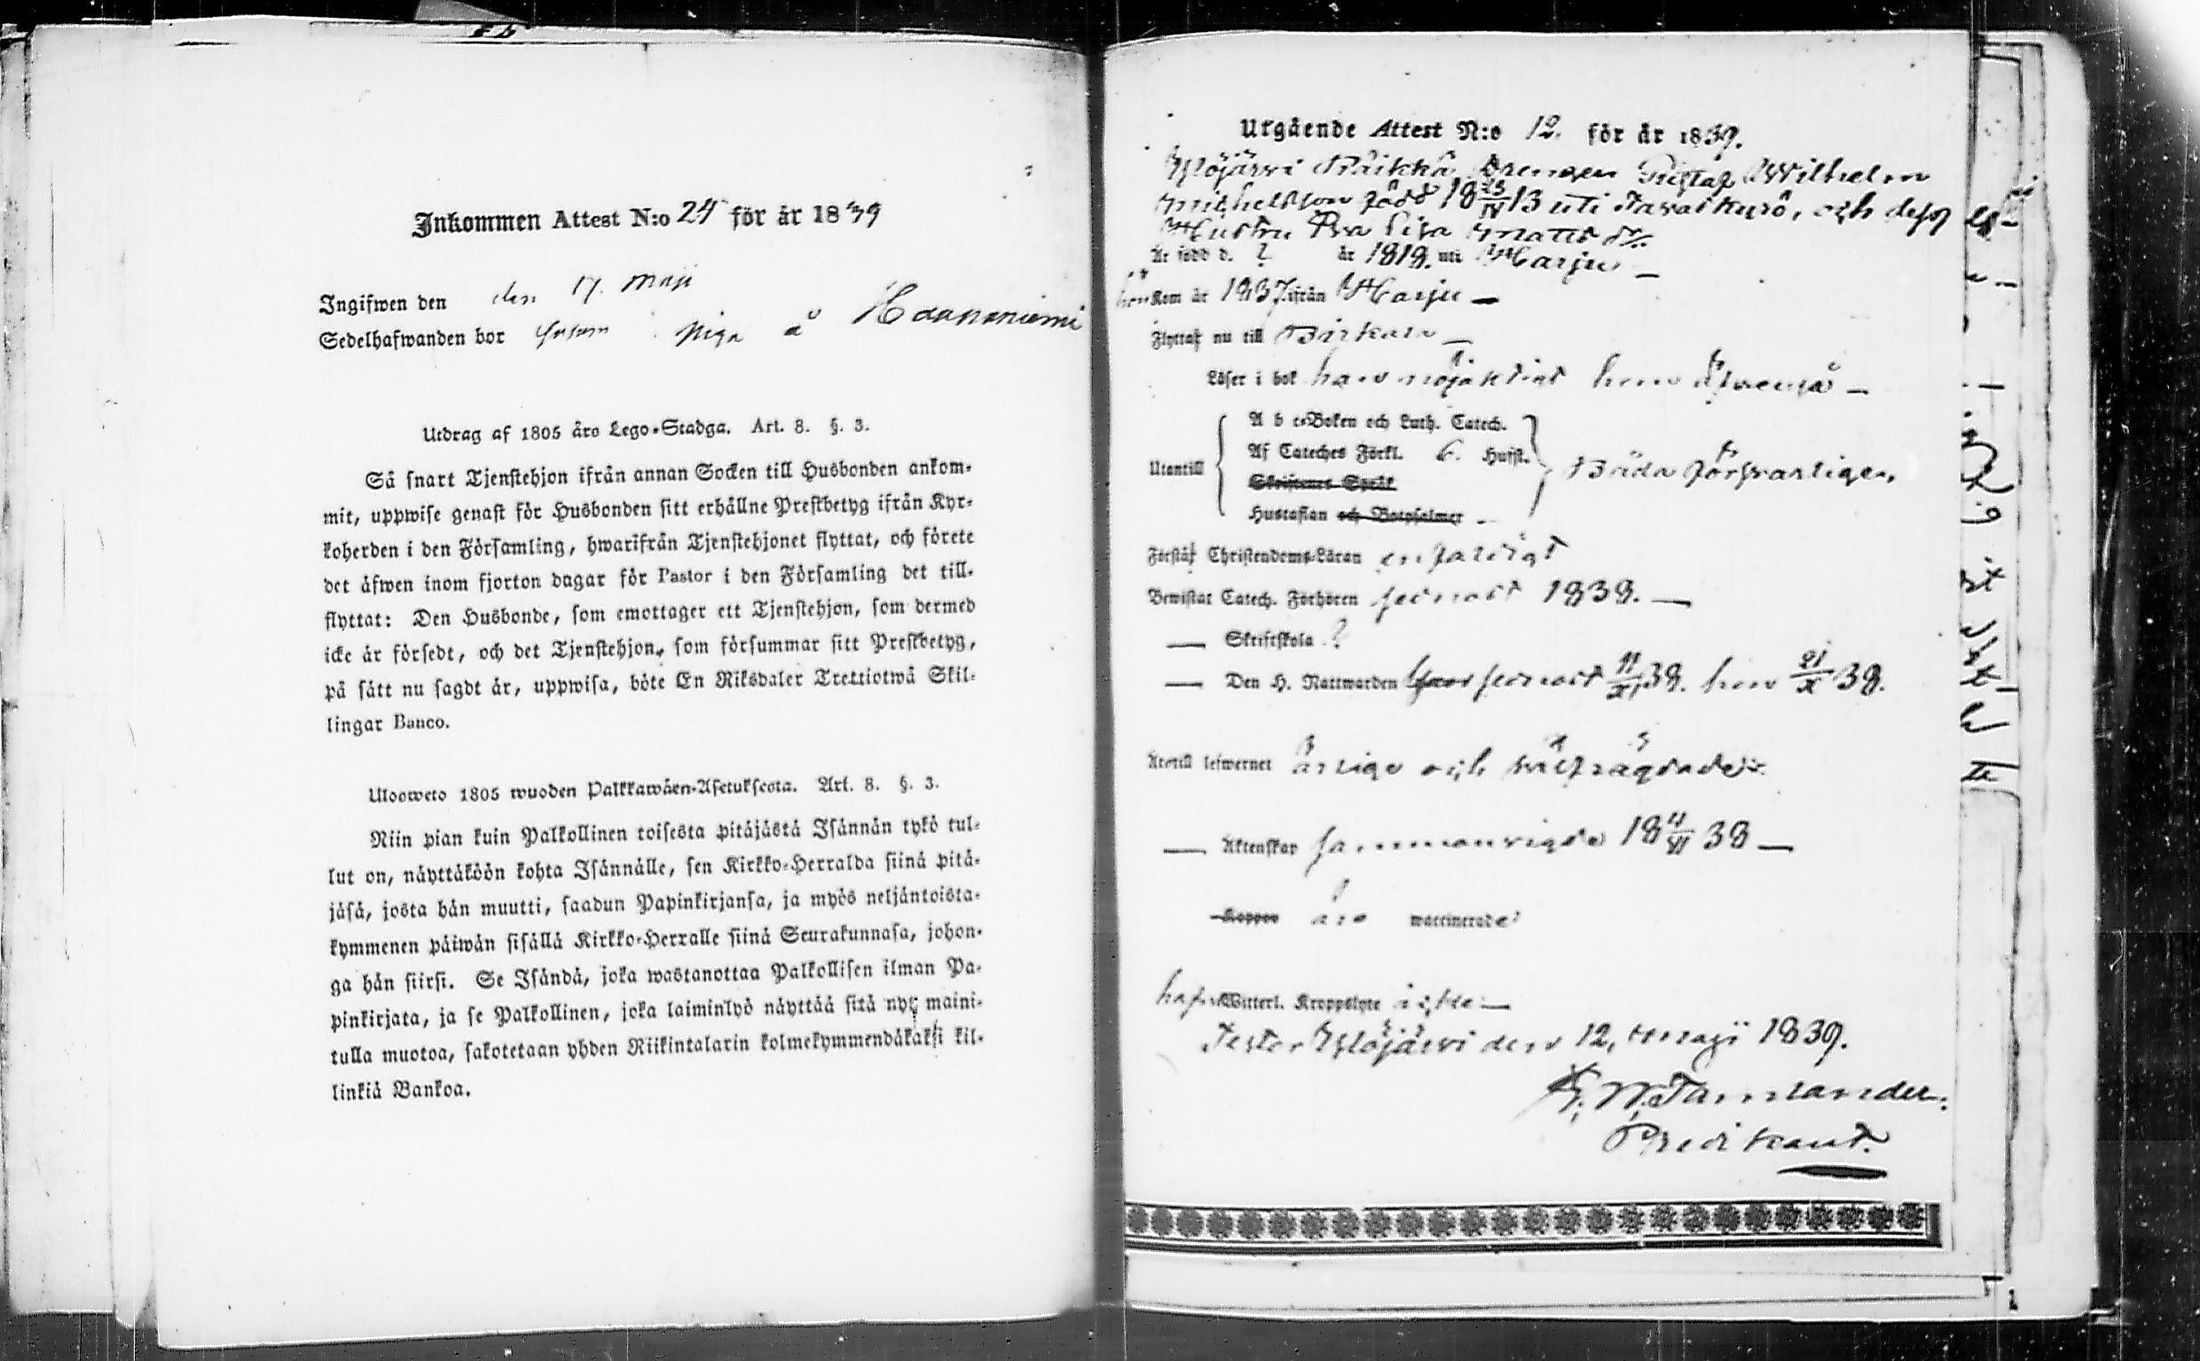 Inkommen Attest N:o 24 för år 1839
Ingifwen den den 17. Maji
Sedelhafwanden bor såsom piga å Haapaniemi
Utdrag af 1805 åro Lego-Stadga. Art. 8. §. 3.
Så snart Tjenstehjon ifrån annan Socken till Husbonden ankom-
mit, uppwise genast för Husbonden sitt erhållne Prestbetyg ifrån Kyr-
koherden i den Församling, hwarifrån Tjenstehjonet flyttat, och förete
det äfwen inom fjorton dagar för Pastor i den Församling det till-
flyttat: Den Husbonde, som emottager ett Tjenstehjon, som dermed
icke är försedt, och det Tjenstehjon, som försummar sitt Prestbetyg,
på sätt nu sagdt är, uppwisa, böte En Riksdaler Trettiotwå Skil-
lingar Banco.
Ulosweto 1805 wuoden Palkkawäen-Asetuksesta. Art. 8. §. 3.
Niin pian kuin Palkollinen toisesta pitäjästä Isännän tykö tul-
lut on, näyttäköön kohta Isännälle, sen Kirkko-Herralda siinä pitä-
jäsä, josta hän muutti, saadun Papinkirjansa, ja myös neljäntoista-
kymmenen päiwän sisällä Kirkko-Herralle siinä Seurakunnasa, johon-
ga hän siirsi. Se Isändä, joka wastanottaa Palkollisen ilman Pa-
pinkirjata, ja se Palkollinen, joka laiminlyö näyttää sitä nyt maini-
tulla muotoa, sakotetaan yhden Riikintalarin kolmekymmendäkaksi kil-
linkiä Bankoa.
Utgående Attest N:o 12. för år 1839.
Ylöjärvi Räikkä Drengen Gustaf Wilhelm
Michelsson född 18 23/IV 13 uti Tavastkyrö, och dess
Hustru Eva Lisa Matts dr.
Är född d. ? år 1818. uti Harju
hon Kom år 1837 ifrån Harju
Flyttat nu till Birkala
Läser i bok han nöjaktigt hon
A b c-Boken och Luth. Catech.
Af Cateches Förkl. 6. Hufst.
Utantill
Skriftenes Språk
Hustaflan och Botpsalmer
Båda försvarligen,
Förstår Christendoms-Läran enfaldigt
Bewistat Catech. Förhören sednast 1838.
Skriftskola ?
Den H. Nattwarden han sednast 11/XI 38. hon 21/X 38.
Till lefwernet ärlige och välfrägdade
Äktenskap sammanvigde 18 4/XI 38
Koppor äro waccinerade
hafva Witterl. Kroppslyte icke
Testor Ylöjärvi den 12, Maji 1839.
G. W. Tamlander.
Predikant.